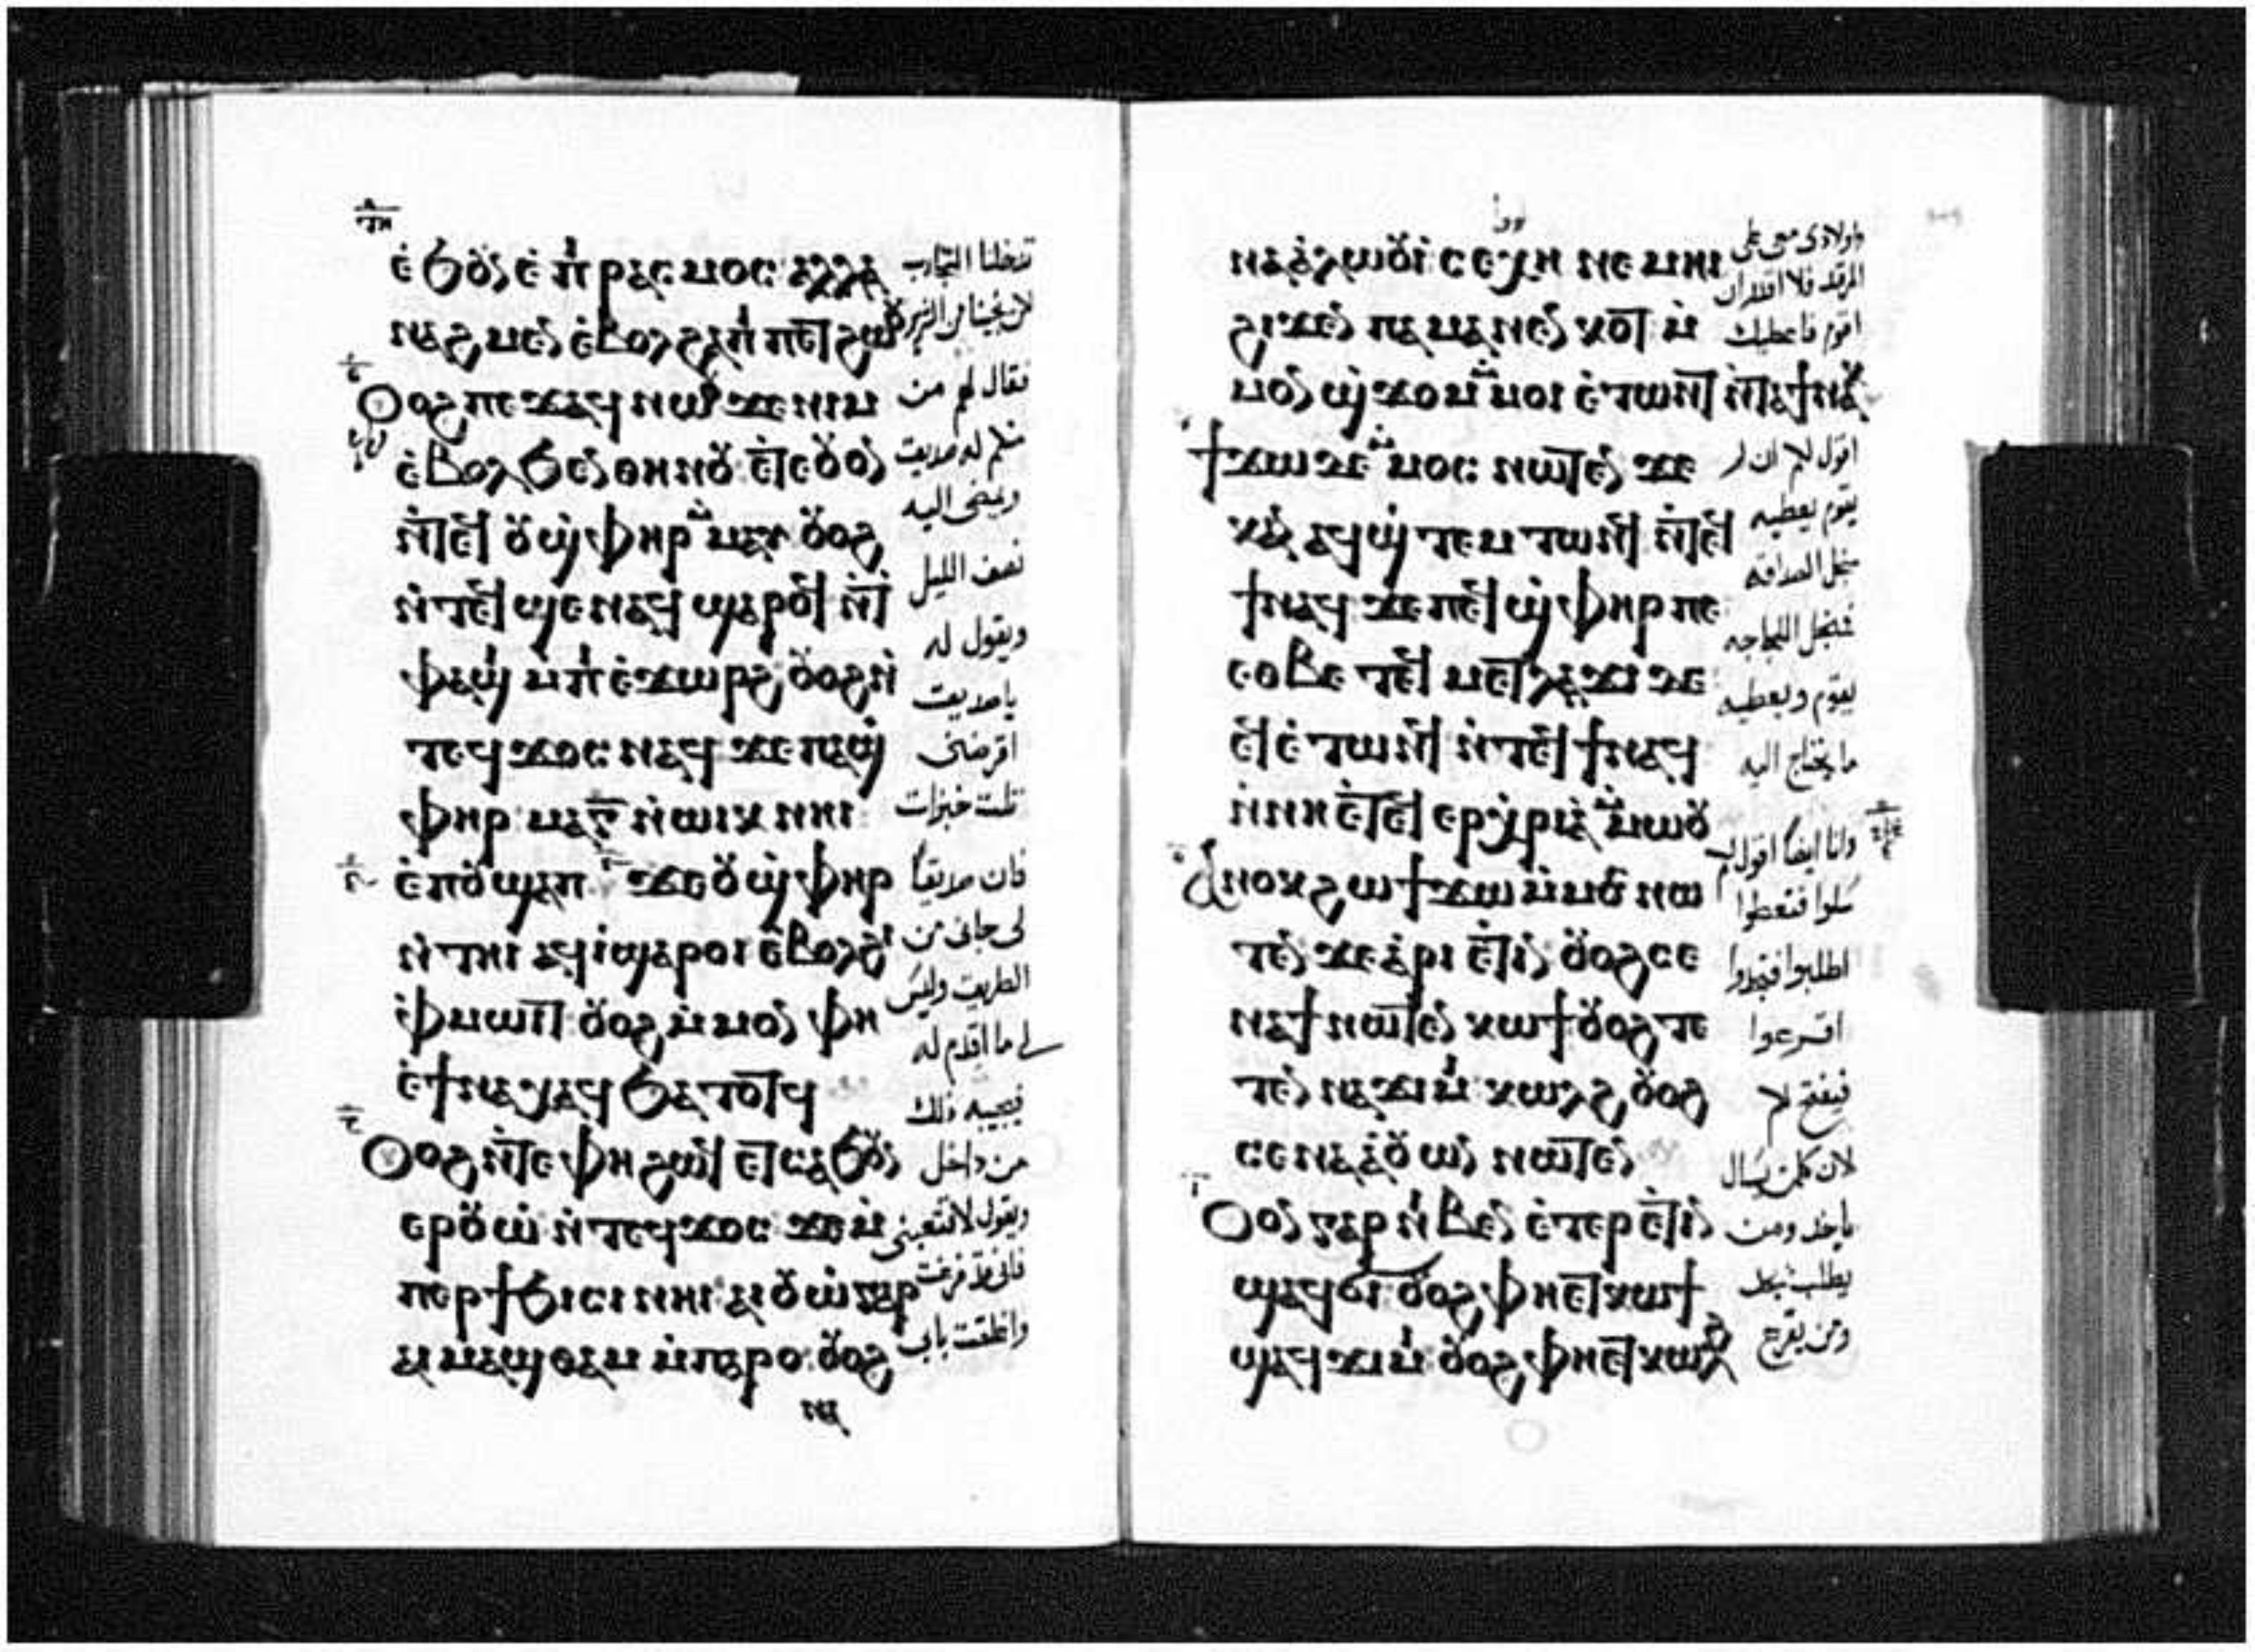 ⲉ̀ϧⲟⲩⲛ ⲉ̀ⲡⲓⲣⲁⲥⲙⲟⲥ ⲁⲗⲗⲁ
ⲛⲁϩⲙⲉⲛ ⲉ̀ⲃⲟⲗϩⲁ ⲡⲓⲡⲉⲧϩⲱⲟⲩ
ⲟⲩⲟϩ ⲡⲉϫⲁϥ ⲛⲱⲟⲩ ϫⲉ ⲛⲓⲙ
ⲉ̀ⲃⲟⲗϧⲉⲛ ⲑⲏⲛⲟⲩ ⲉ̀ⲧⲉ ⲟⲩⲟⲛ
ⲛ̀ⲧⲉϥ ⲟⲩϣ̀ⲫⲏⲣ ⲙ̀ⲙⲁⲩ ⲟⲩⲟϩ
ⲛ̀ⲧⲉϥϣⲉⲛⲁϥ ϣⲁⲣⲟϥ ⲛ̀ⲧ
ⲫⲁϣⲓ ⲙ̀ⲡⲓⲉ̀ϫⲱⲣϩ ⲟⲩⲟϩ ⲛ̀
ⲧⲉϥϫⲟⲥ ⲛⲁϥ ϫⲉ ⲡⲁϣ̀
ⲫⲏⲣ ⲙⲁ ⲅ̅ ⲛ̀ⲱⲓⲕ ⲛⲏⲓ
ⲉ̀ⲡⲟⲩϣⲁⲡ ϫⲉ ⲟⲩϣ̀ⲫⲏⲣ
ⲛ̀ⲧⲏⲓ ⲁϥⲓ̀ ϣⲁⲣⲟⲓ ⲉ̀ⲃⲟⲗϩⲓ
ⲫ̀ⲙⲱⲓⲧ ⲟⲩⲟϩ ⲙ̀ⲙⲟⲛ ⲫⲏ
ⲉ̀ϯⲛⲁⲭⲁϥ ϧⲁⲧⲟⲧϥ
ⲟⲩⲟϩ ⲛ̀ⲧⲉ ⲫⲏ ϩⲱϥ ⲉⲧⲥⲁϧⲟⲩⲛ
ⲉⲣⲟⲩⲱ̀ ⲛ̀ⲧⲉϥϫⲟⲥ ϫⲉ ⲙ̀
ⲡⲉⲣϯϧⲓⲥⲓ ⲛⲏⲓ ⲁⲓⲟⲩⲱ̀ ⲅⲁⲣ
ⲁⲓⲙⲁϣⲑⲁⲙ ⲙ̀ⲡⲁⲣⲟ ⲟⲩⲟϩ
ⲛⲁ
تدخلنا التجارب
لكن نجينا من الشرير
فقال لهم من
منكم له صديق
ويمضى اليه
نصف الليل
ويقول له
يا صديق
اقرضنى
ثلث خبزات
فان صديقا
لى جانى من
الطريق وليس
لى ما اقدم له
فيجيبه ذلك
من داخل
ويقول لا تتعبنى
فانى قد فرغت
واغلقت بابى
ⲛⲁⲁ̀ⲗⲱⲟⲩⲓ̀ ⲥⲉⲭⲏ ⲛⲉⲙⲏⲓ
ϩⲓϫⲉⲛ ⲡⲁⲙⲁⲛ̀ⲉⲛⲕⲟⲧ ⲙ̀
ⲙⲟⲛ ϣ̀ϫⲟⲙ ⲙ̀ⲙⲟⲓ ⲉ̀ⲧⲱⲛⲧ ⲛ̀ⲧⲁϯⲛⲁⲕ
ϯϫⲱ ϫⲉ ⲙ̀ⲙⲟⲥ ⲛⲱⲧⲉⲛ ϫⲉ
ⲕⲁⲛ ⲁϥϣ̀ⲧⲉⲙⲧⲱⲛϥ ⲛ̀ⲧⲉϥ
ϯⲛⲁϥ ϫⲉ ⲡⲉϥϣ̀ⲫⲏⲣ ⲡⲉ
ⲉⲑⲃⲉ ⲧⲉϥⲙⲉⲧⲗⲁϫⲓ ϫⲉ
ⲉϥⲉ̀ⲧⲱⲛϥ ⲛ̀ⲧⲉϥϯⲛⲁϥ
ⲛ̀ⲛⲏ ⲉ̀ⲧⲉϥⲉⲣⲭ̀ⲣⲓⲁ̀ ⲙ̀ⲙⲱⲟⲩ
ⲁⲛⲟⲕ ϩⲱ ϯϫⲱ ⲙ̀ⲙⲟⲥ ⲛⲱ
ⲧⲉⲛ ϫⲉ ⲁ̀ⲣⲓⲉ̀ⲧⲓⲛ ⲟⲩⲟϩ ⲥⲉ
ⲛⲁϯ ⲛⲱⲧⲉⲛ ⲕⲱϯ ⲟⲩⲟϩ ⲧⲉ
ⲧⲉⲛⲛⲁϫⲓⲙⲓ ⲕⲱⲗϩ ⲟⲩⲟϩ
ⲥⲉⲛⲁⲁ̀ⲟⲩⲱⲛ ⲛⲱⲧⲉⲛ
ⲟⲩⲟⲛ ⲅⲁⲣ ⲛⲓⲃⲉⲛ ⲉ̀ⲧⲉⲣⲉ̀ⲧⲓⲛ
ϣⲁϥϭⲓ ⲟⲩⲟϩ ⲫⲏ ⲉⲧⲕⲱϯ
ϣⲁϥϫⲓⲙⲓ ⲟⲩⲟϩ ⲫⲏ ⲉⲧⲕⲱⲗϩ
واولادى معى على
المرقد فلا اقدر ان
اقوم فاعطيك
اقول لكم ان لم
يقوم يعطيه
من اجل الصداقه
فمن اجل اللجاجه
يقوم ويعطيه
ما يحتاج اليه
وانا ايضا اقول لكم
سلوا فتعطوا
اطلبوا فتجدوا
اقرعوا
فيفتح لكم
لان كل من يسال
ياخذ ومن
يطلب يجد
ومن يقرع